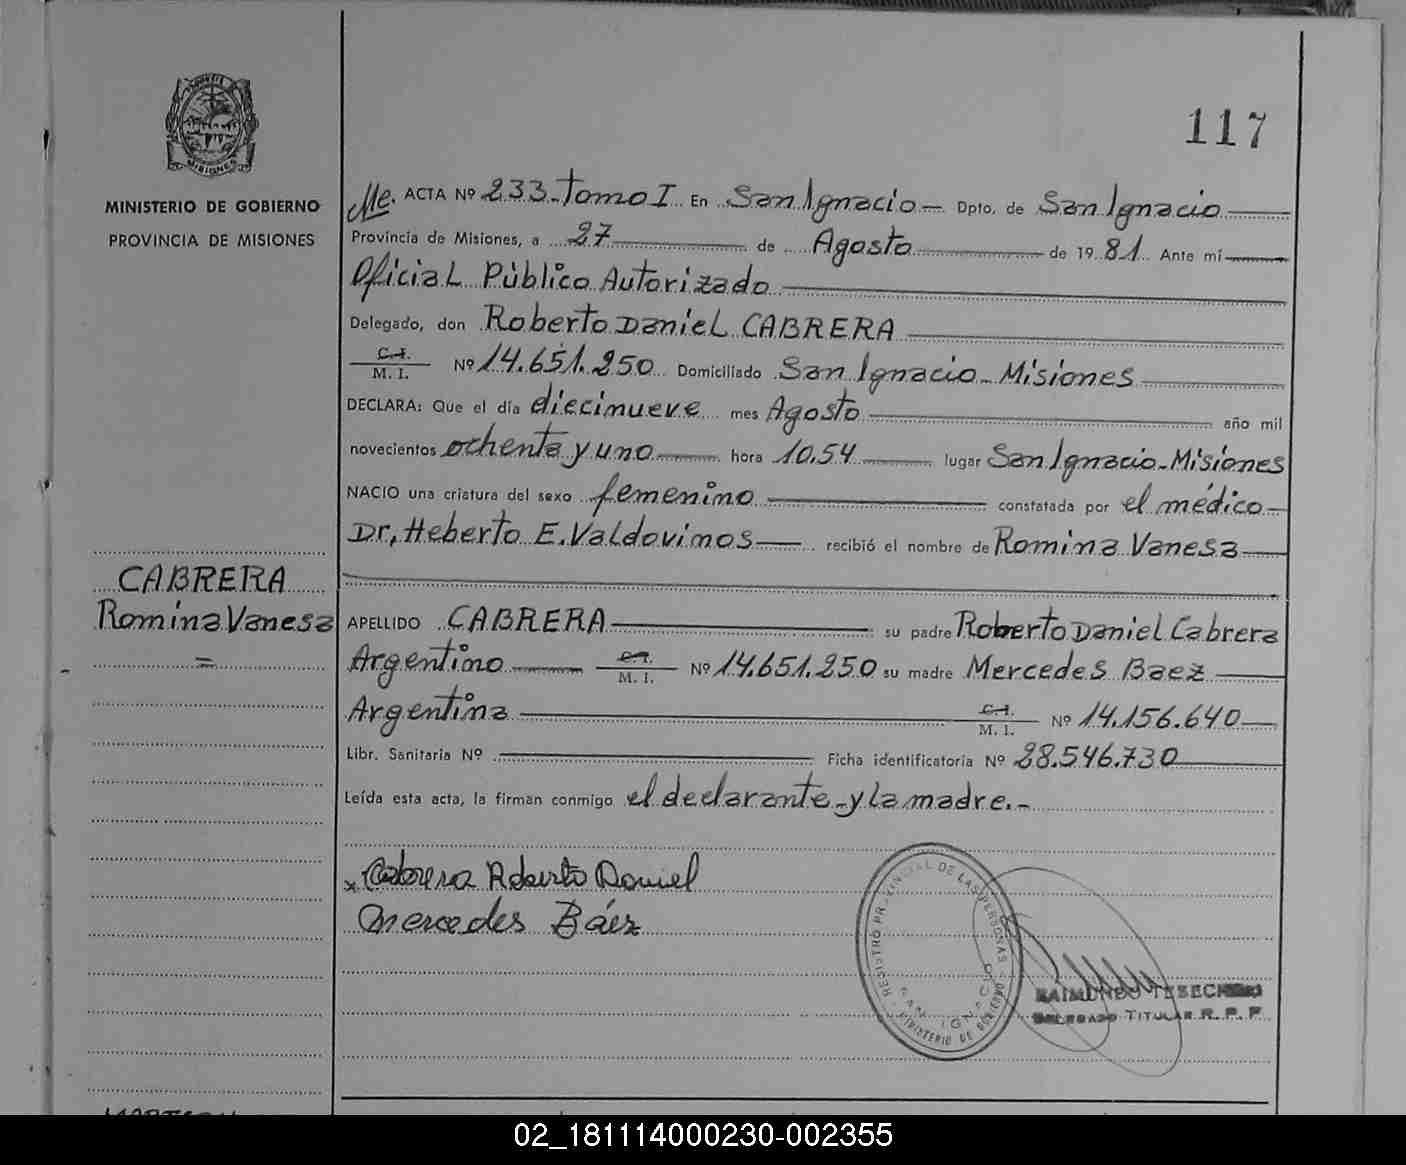 117
MISIONES
MINISTERIO DE GOBIERNO
PROVINCIA DE MISIONES
CABRERA
Romina Vanesa
=
Me. ACTA Nº 233. Tomo I En San Ignacio - Dpto. de San Ignacio
Provincia de Misiones, a 27 de Agosto de 1981 Ante mi
Oficial Público Autorizado
Delegado, don Roberto Daniel CABRERA
C.I. / M. I. Nº 14.651.250 Domiciliado San Ignacio - Misiones
DECLARA: Que el día diecinueve mes Agosto año mil
novecientos ochenta y uno hora 10.54 lugar San Ignacio - Misiones
NACIO una criatura del sexo femenino constatada por el médico
Dr, Heberto E. Valdovinos recibió el nombre de Romina Vanesa
APELLIDO CABRERA su padre Roberto Daniel Cabrera
Argentino C.I. / M. I. Nº 14.651.250 su madre Mercedes Baez
Argentina C.I. / M. I. Nº 14.156.640
Libr. Sanitaria Nº Ficha identificatoria Nº 28.546.730
Leída esta acta, la firman conmigo el declarante - y la madre. -
x Cabrera Roberto Daniel
Mercedes Báez
REGISTRO PROVINCIAL DE LAS PERSONAS
SAN IGNACIO
MINISTERIO DE GOBIERNO
RAIMUNDO
DELEGADO TITULAR R. P. P.
02_181114000230-002355